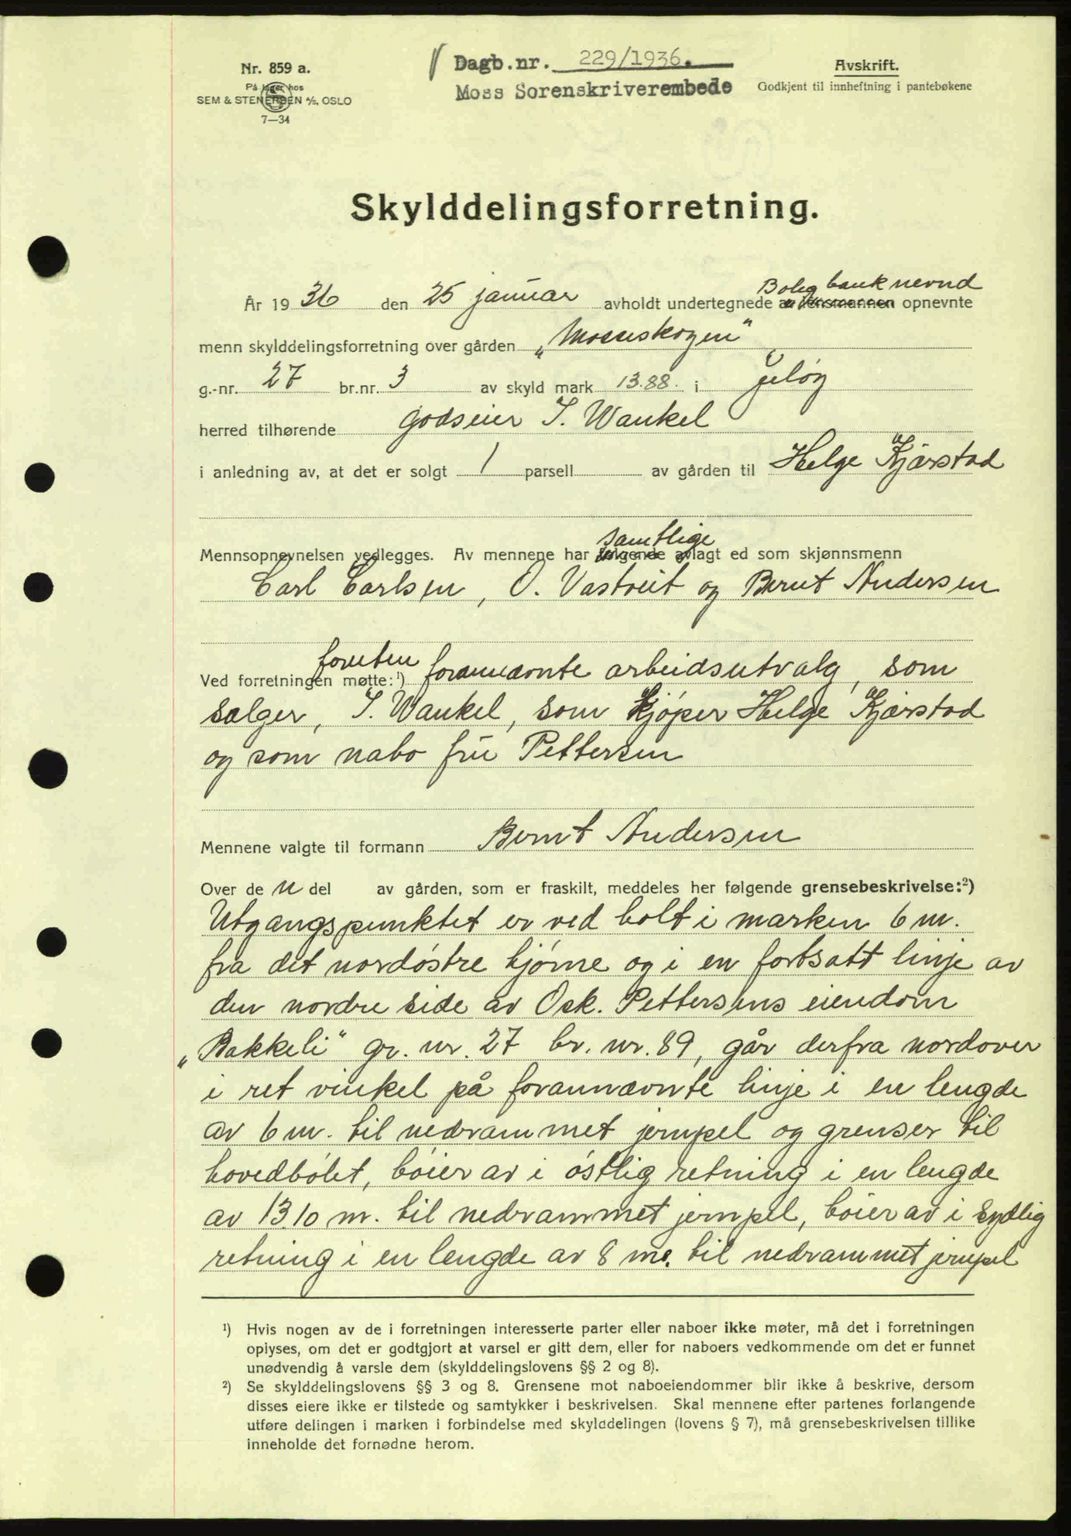 Nr. 859 a.
På lager hos
SEM & STENERSEN A/S, OSLO
7—34
Dagb.nr. 229/1936.
Moss Sorenskriverembede
Avskrift.
Godkjent til innheftning i pantebøkene
Skylddelingsforretning.
Bolig bank nevnd
År 1936 den 25 januar avholdt undertegnede av lensmannen opnevnte
menn skylddelingsforretning over gården „Mosseskogen"
g.-nr. 27 br.nr. 3 av skyld mark 13.88. i Jeløy
herred tilhørende godseier I. Wankel
i anledning av, at det er solgt 1 parsell av gården til Helge Kjærstad
samtlige
Mennsopnevnelsen vedlegges. Av mennene har følgende avlagt ed som skjønnsmenn
Carl Carlsen, O. Vastveit og Bernt Andersen
Ved forretningen møtte:¹) foruten forannævnte arbeidsutvalg, som
sælger, I. Wankel, som kjøper Helge Kjærstad
og som nabo fru Pettersen
Mennene valgte til formann Bernt Andersen
Over de n del av gården, som er fraskilt, meddeles her følgende grensebeskrivelse:²)
Utgangspunktet er ved bolt i marken 6 m.
fra det nordøstre hjørne og i en fortsatt linje av
den nordre side av Osk. Pettersens eiendom
„Bakkeli" gr. nr. 27 br. nr. 89, går derfra nordover
i ret vinkel på forannævnte linje i en lengde
av 6 m. til nedrammet jernpel og grenser til
hovedbølet, bøier av i østlig retning i en lengde
av 13,10 m. til nedrammet jernpel, bøier av i sydlig
retning i en lengde av 8 m. til nedrammet jernpel
¹) Hvis nogen av de i forretningen interesserte parter eller naboer ikke møter, må det i forretningen
oplyses, om det er godtgjort at varsel er gitt dem, eller for naboers vedkommende om det er funnet
unødvendig å varsle dem (skylddelingslovens §§ 2 og 8).
²) Se skylddelingslovens §§ 3 og 8. Grensene mot naboeiendommer blir ikke å beskrive, dersom
disses eiere ikke er tilstede og samtykker i beskrivelsen. Skal mennene efter partenes forlangende
utføre delingen i marken i forbindelse med skylddelingen (lovens § 7), må grensebeskrivelsen tillike
inneholde det fornødne herom.